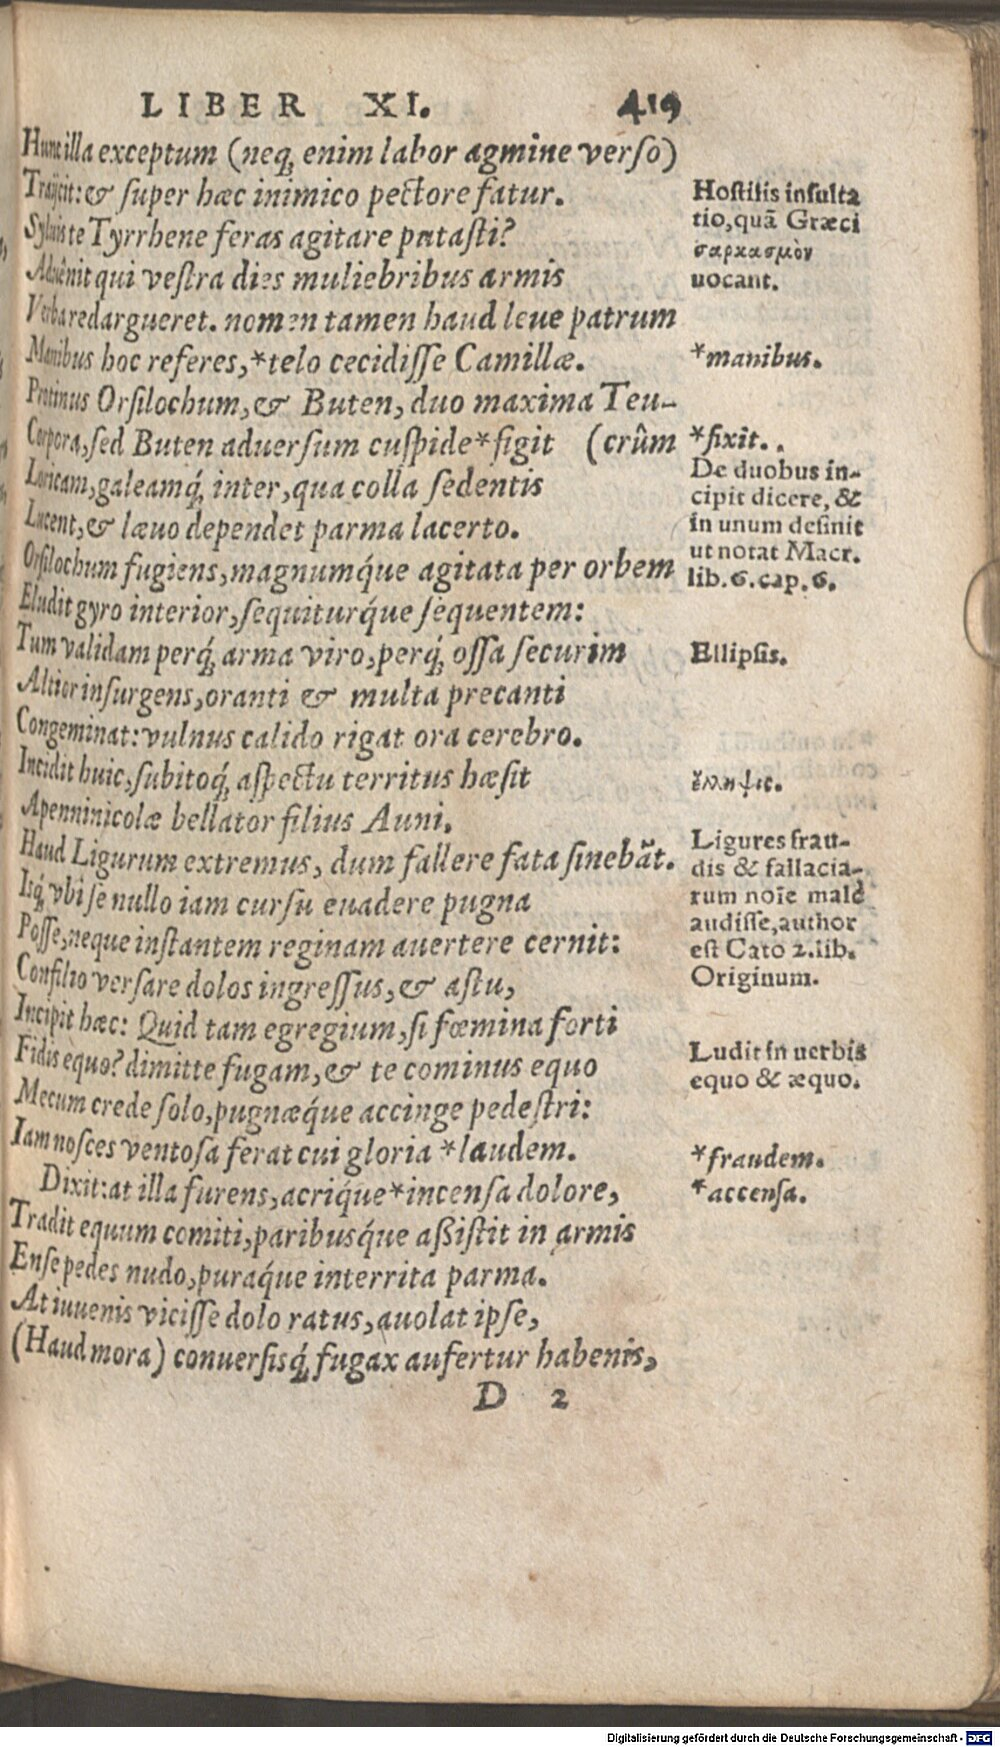 LIBER XI. 419
Hunc illa exceptum (neq; enim labor agmine verso)
Traijcit: & super hæc inimico pectore fatur.
Syluis te Tyrrhene feras agitare putasti?
Aduênit qui vestra dies muliebribus armis
Verba redargueret. nomen tamen haud leue patrum
Manibus hoc referes, *telo cecidisse Camillæ.
Protinus Orsilochum, & Buten, duo maxima Teu-
Corpora, sed Buten aduersum cuspide *figit (crûm
Loricam, galeamq́; inter, qua colla sedentis
Lucent, & læuo dependet parma lacerto.
Orsilochum fugiens, magnumq́ue agitata per orbem
Eludit gyro interior, sequiturq́ue sequentem:
Tum validam perq́; arma viro, perq́; ossa securim
Altior insurgens, oranti & multa precanti
Congeminat: vulnus calido rigat ora cerebro.
Incidit huic, subitoq́; aspectu territus hæsit
Apenninicolæ bellator filius Auni.
Haud Ligurum extremus, dum fallere fata sinebãt.
Isq́; vbi se nullo iam cursu euadere pugna
Posse, neque instantem reginam auertere cernit:
Consilio versare dolos ingressus, & astu,
Incipit hæc: Quid tam egregium, si fœmina forti
Fidis equo? dimitte fugam, & te cominus equo
Mecum crede solo, pugnæq́ue accinge pedestri:
Iam nosces ventosa ferat cui gloria *laudem.
Dixit: at illa furens, acriq́ue *incensa dolore,
Tradit equum comiti, paribusq́ue aßistit in armis
Ense pedes nudo, puraq́ue interrita parma.
At iuuenis vicisse dolo ratus, auolat ipse,
(Haud mora) conuersisq́; fugax aufertur habenis,
D 2
Hostilis insulta
tio, quã Græci
σαρκασμὸν
uocant.
*manibus.
*fixit.
De duobus in-
cipit dicere, &
in unum definit
ut notat Macr.
lib. 6. cap. 6.
Ellipsis.
ἔλληψις.
Ligures frau-
dis & fallacia-
rum noĩe malè
audisse, author
est Cato 2. lib.
Originum.
Ludit in uerbis
equo & æquo.
*fraudem.
*accensa.
Digitalisierung gefördert durch die Deutsche Forschungsgemeinschaft - DFG